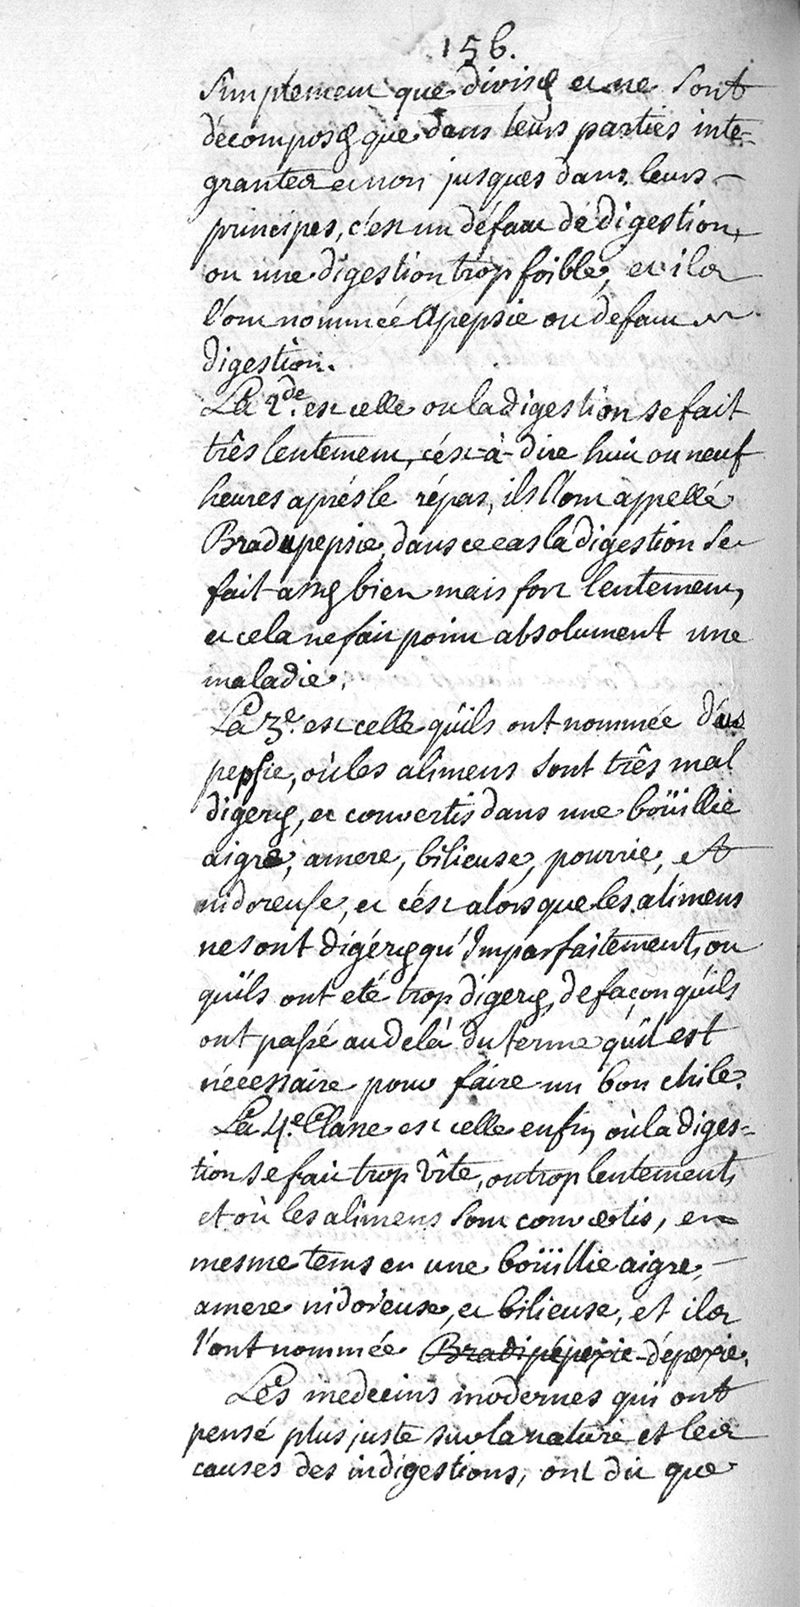 156.
simplement que divisés et ne sont
décomposés que dans leurs parties inte-
grantes et non jusques dans leurs
principes, c'est un défaut de digestion,
ou une digestion trop foible, et ils
l'ont nommée Apepsie ou defaut de
digestion.
La 2.de est celle ou la digestion se fait
três lentement, c'ést-à-dire huit ou neuf
heures aprés le répas, ils l'ont appellé
Bradupepsie, dans ce cas la digestion se
fait assés bien mais fort lentement,
et cela ne fait point absolument une
maladie.
La 3.e est celle qu'ils ont nommée
pepsie, où les alimens sont três mal
digerés, et convertis dans une boüillie
aigre, amere, bilieuse, pourrie, et
nidoreuse, et c'ést alors que les alimens
ne sont digérés qu'Imparfaitement, ou
qu'ils ont eté trop digerés, de façon qu'ils
ont passé au delà du terme qu'il est
nécessaire pour faire un bon chile.
La 4.e Classe est celle enfin où la diges-
tion se fait trop vîte, ou trop lentement,
et où les alimens sont convertis, en
mesme tems en une boüillie aigre,
amere nidoreuse, et bilieuse, et ils
l'ont nommée
Les medecins modernes qui ont
pensé plus juste sur la nature et les
causes des indigestions, ont dit que